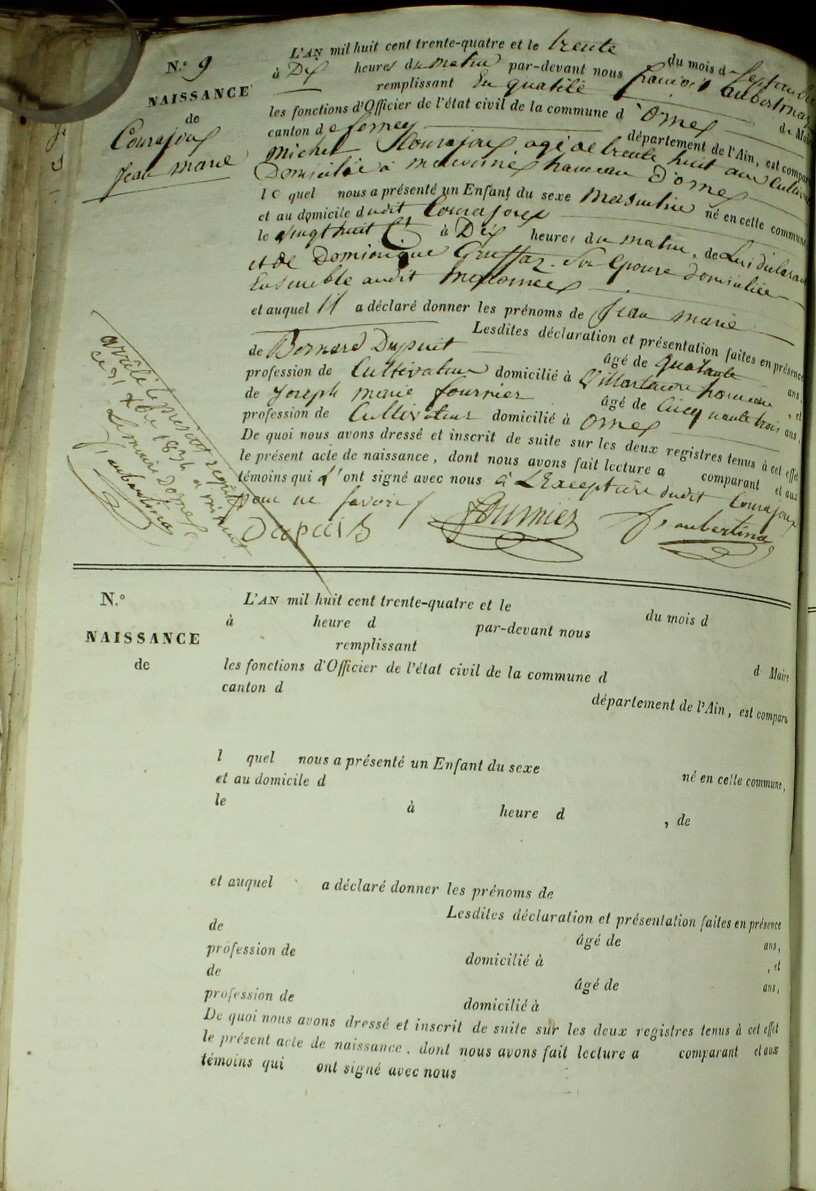 N.º 9
NAISSANCE
de
Courajoux
Jean marie
L'AN mil huit cent trente-quatre et le trente du mois d
à Dix heures du matin par-devant nous françois aubertina
remplissant En qualité d Maire
les fonctions d'Officier de l'état civil de la commune d'Ornex
canton de ferney département de l'Ain, est comparu
Michel Courajoux agé de trente huit ans Cultivateur
Domicilié à hameau D'ornex
le quel nous a présenté un Enfant du sexe Masculin né en cette commune,
et au domicile dudit Courajoux
le vingt huit Ct à Dix heures du matin, de Lui déclarant
et de Dominique Greffaz Son Epouse domiciliée
Ensemble audit
et auquel Il a déclaré donner les prénoms de Jean marie
Lesdites déclaration et présentation faites en présence
de Bernard Dupuit âgé de quarante ans,
profession de Cultivateur domicilié à hameau, et
de Joseph marie fournier âgé de Cinquante trois ans,
profession de Cultivateur domicilié à Ornex
De quoi nous avons dressé et inscrit de suite sur les deux registres tenus à cet effet
le présent acte de naissance, dont nous avons fait lecture a comparant et aux
témoins qui l'ont signé avec nous à L'Exception dudit Courajoux
pour ne savoir
Dupuis fournier f. aubertina
arrêté le présent registre
ce 31 Xbre 1834 à minuit
Le maire D'ornex
f. aubertina
N.º
NAISSANCE
de
L'AN mil huit cent trente-quatre et le du mois d
à heure d par-devant nous
remplissant d Maire
les fonctions d'Officier de l'état civil de la commune d
canton d département de l'Ain, est comparu
l quel nous a présenté un Enfant du sexe né en cette commune,
et au domicile d
le à heure d , de
et auquel a déclaré donner les prénoms de
Lesdites déclaration et présentation faites en présence
de âgé de ans,
profession de domicilié à , et
de âgé de ans,
profession de domicilié à
De quoi nous avons dressé et inscrit de suite sur les deux registres tenus à cet effet
le présent acte de naissance, dont nous avons fait lecture a comparant et aux
témoins qui ont signé avec nous